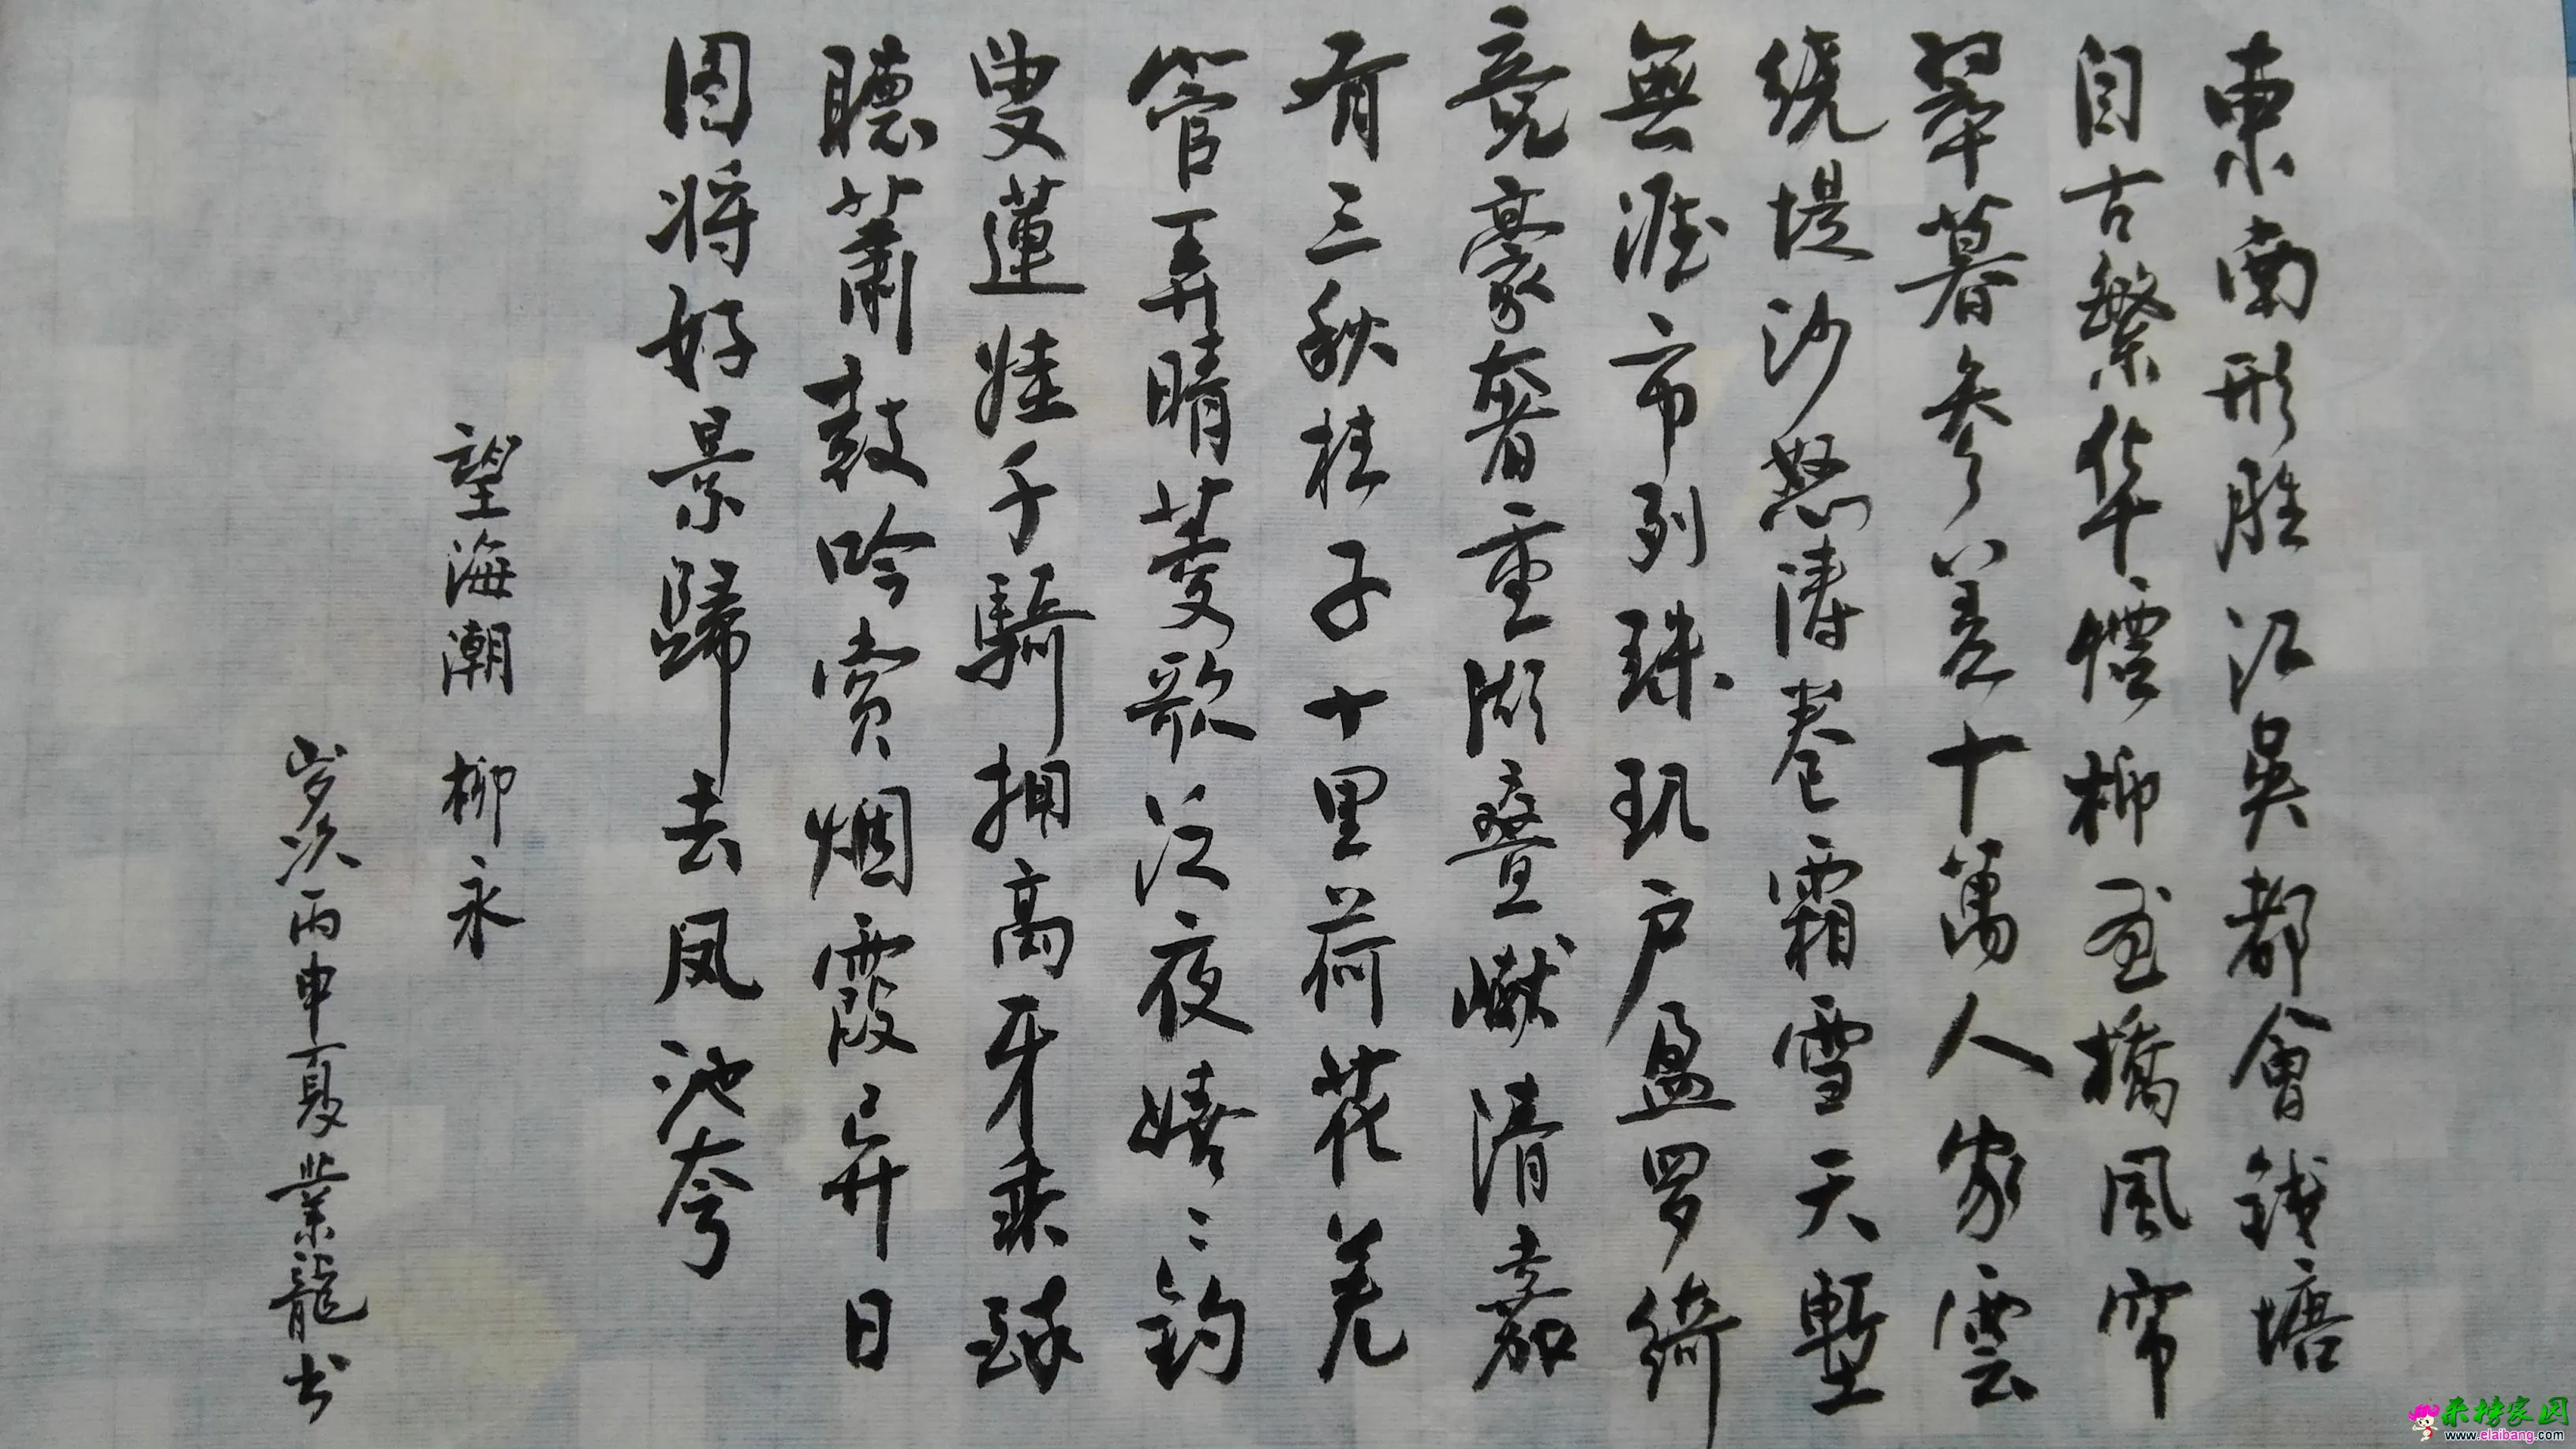 東南形胜江吳都會钱塘
自古繁华煙柳画橋風帘
翠暮参差十萬人家雲
绕堤沙怒涛卷霜雪天塹
無涯市列珠玑户盈罗绮
竞豪奢重湖疊巘清嘉
有三秋桂子十里荷花羌
管弄晴菱歌泛夜嬉〻钓
叟蓮娃千騎拥高牙乘醉
聽萧鼓吟赏烟霞异日
图将好景歸去凤池夸
望海潮 柳永
岁次丙申夏業龍书
来榜家园
www.elaibang.com